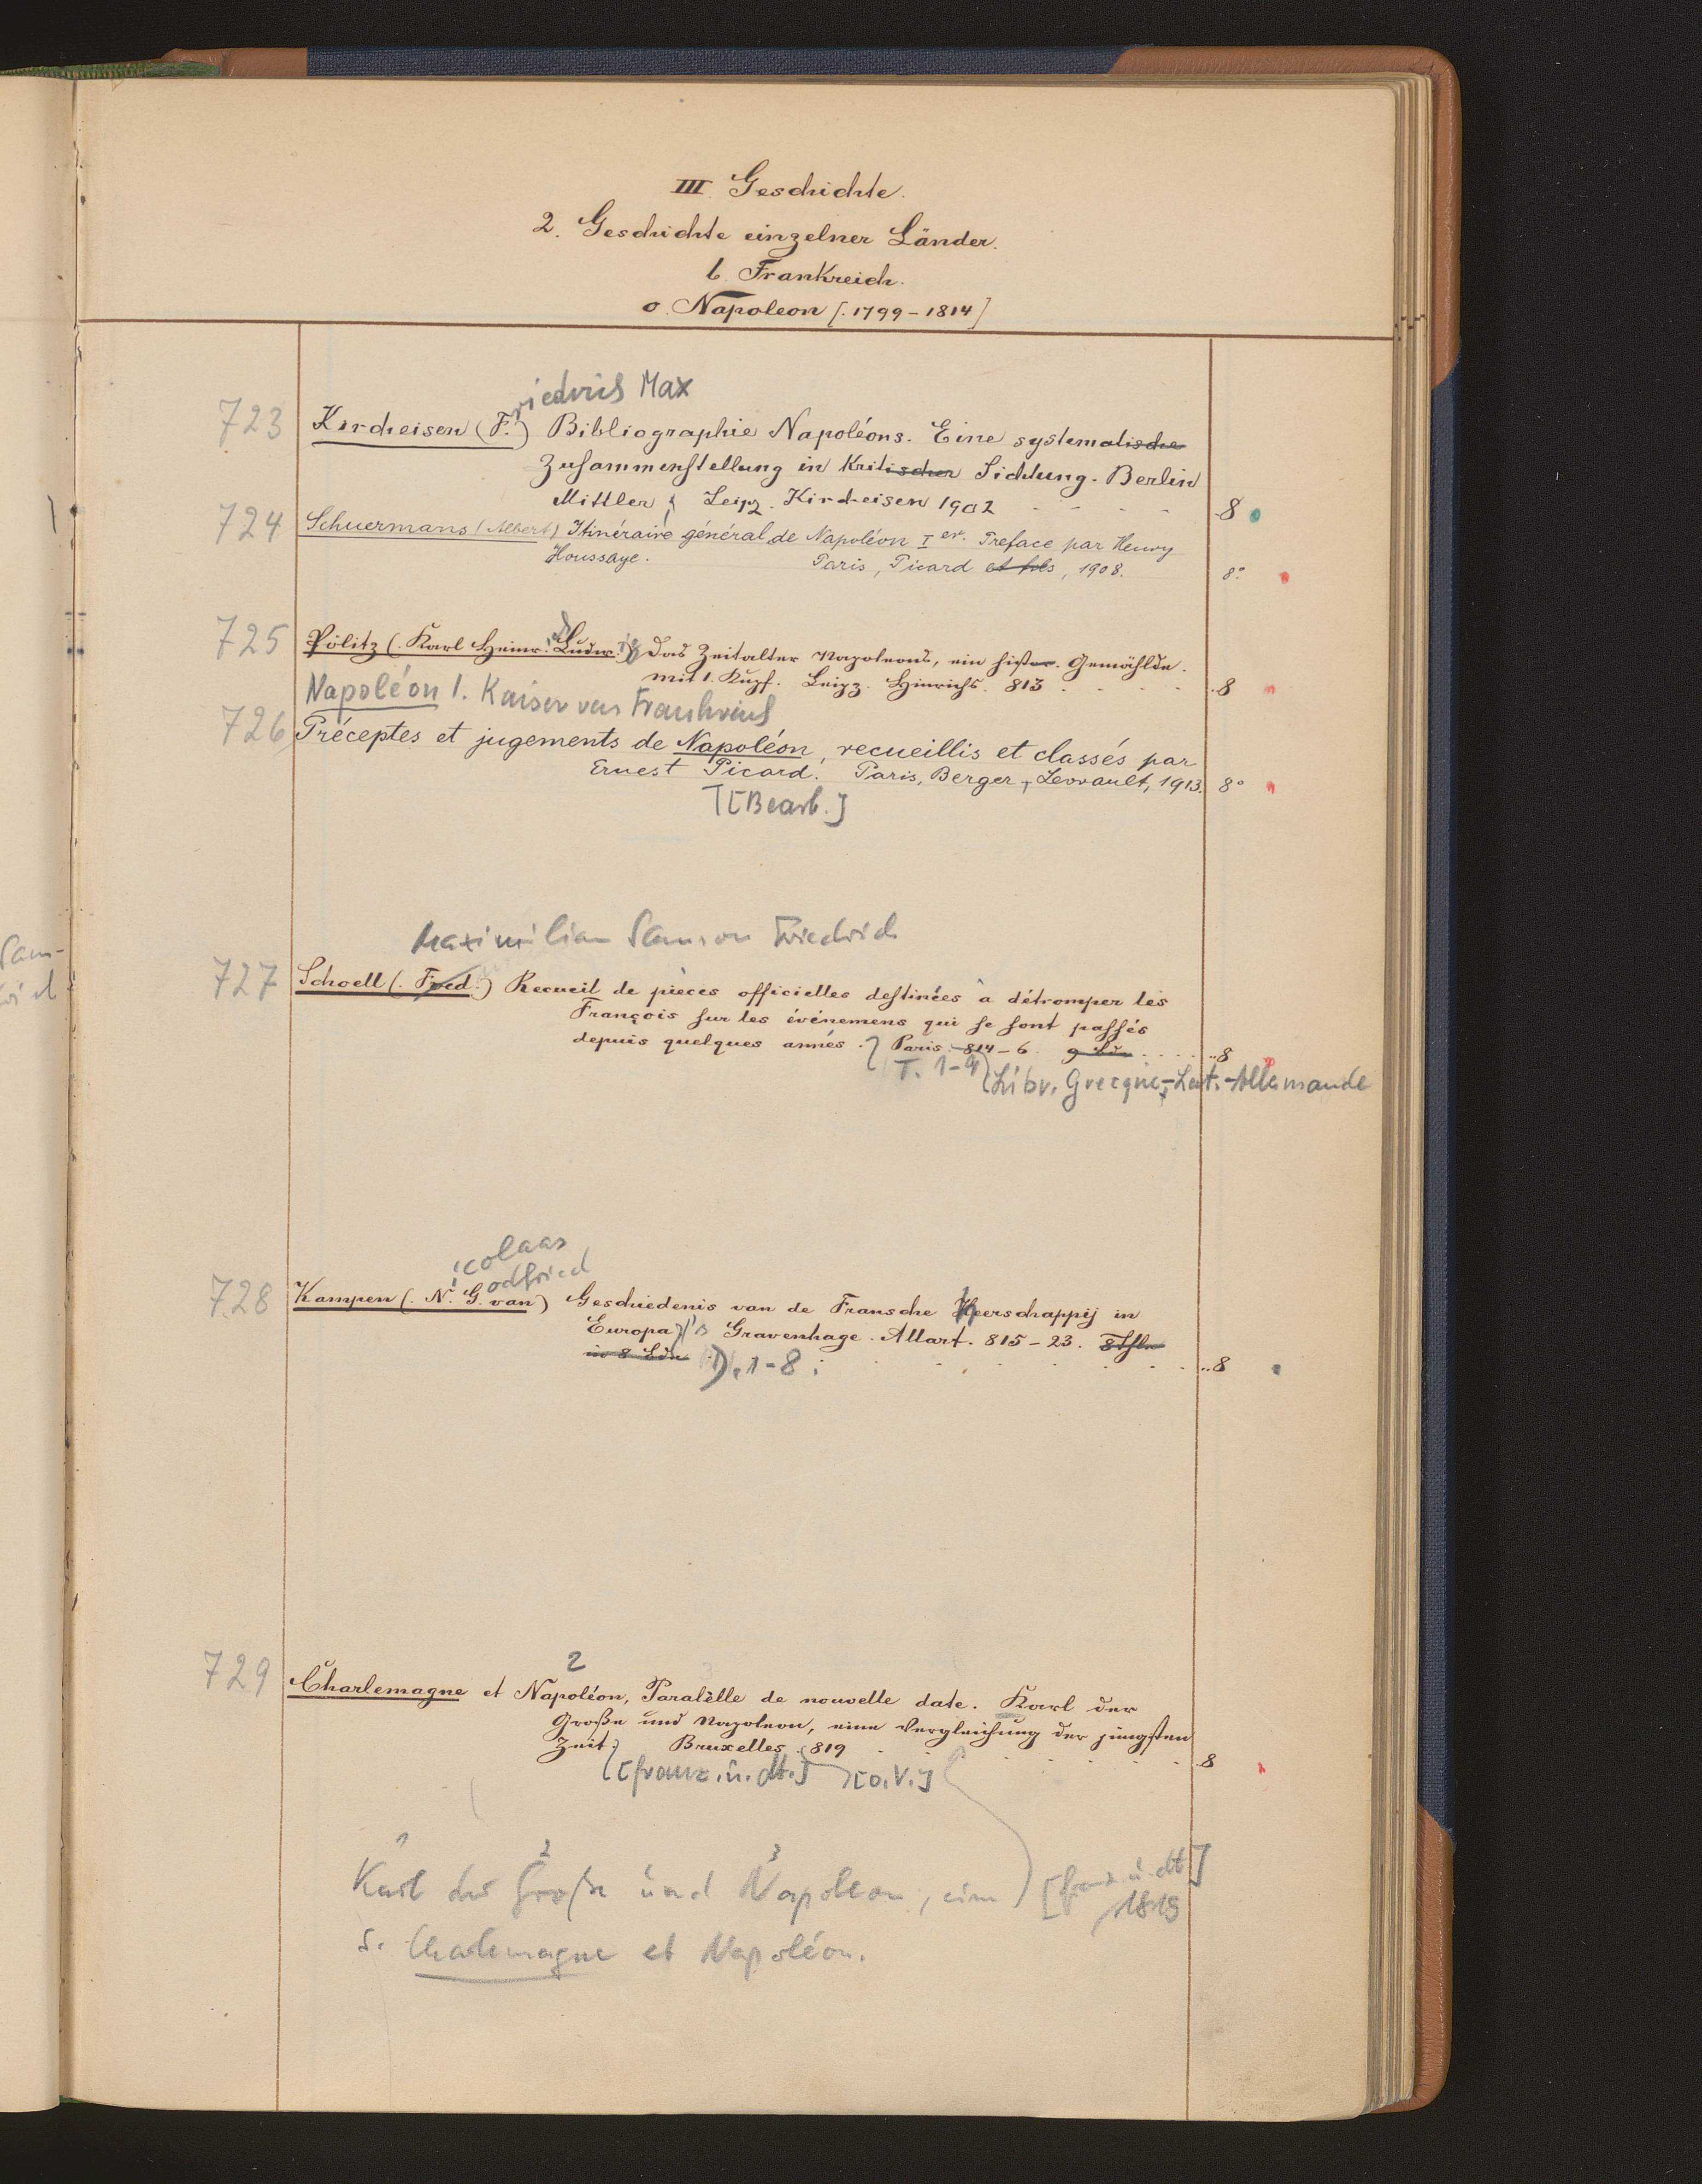 III. Geschichte.
2. Geschichte einzelner Länder.
b. Frankreich.
o. Napoleon [. 1799-1814]
riedrich Max
723 Kircheisen (F.) Bibliographie Napoléons. Eine systematische
Zusammenstellung in kritischer Sichtung. Berlin
Mittler; Leipz. Kircheisen 1902 8
724 Schuermans (Albert) Itinéraire général de Napoléon Ier. Preface par Henry
Houssaye. Paris, Picard et fils, 1908. 8°
725 Pölitz (. Karl Heinr. Ludw.) Das Zeitalter Napoleons, ein histor. Gemählde.
mit 1. Kupf. Leipz. Hinrichs. 813 8
Napoléon I. Kaiser von Frankreich
726 Préceptes et jugements de Napoléon, recueillis et classés par
Ernest Picard. Paris, Berger-Levrault, 1913. 8°
[Bearb.]
Maximilian Samson Friedrich
727 Schoell (. Fred.) Recueil de pièces officielles destinées à détromper les
François sur les événemens qui se sont passés
depuis quelques annés. Paris. 814-6. 9 Bde 8
T. 1-9 Libr. Grecque-Lat.-Allemande
icolaas
odfried
728 Kampen (. N. G. van) Geschiedenis van de Fransche heerschappij in
Europa 's Gravenhage. Allart. 815-23. 8 Thle
in 8 Bdn D. 1-8 8
2
729 Charlemagne et Napoléon, Paralèlle de nouvelle date. Karl der
Große und Napoleon, eine Vergleichung der jüngsten
Zeit; Bruxelles. 819 8
[franz. u. dt.] [o.V.]
1 2 3
Karl der Große und Napoleon, eine [franz. u. dt]
1819
s. Charlemagne et Napoléon.